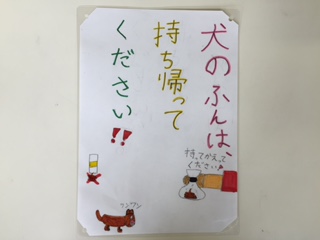 犬のふんは、
持ち帰って
ください!!
持ってかえって
ください
ワンワン